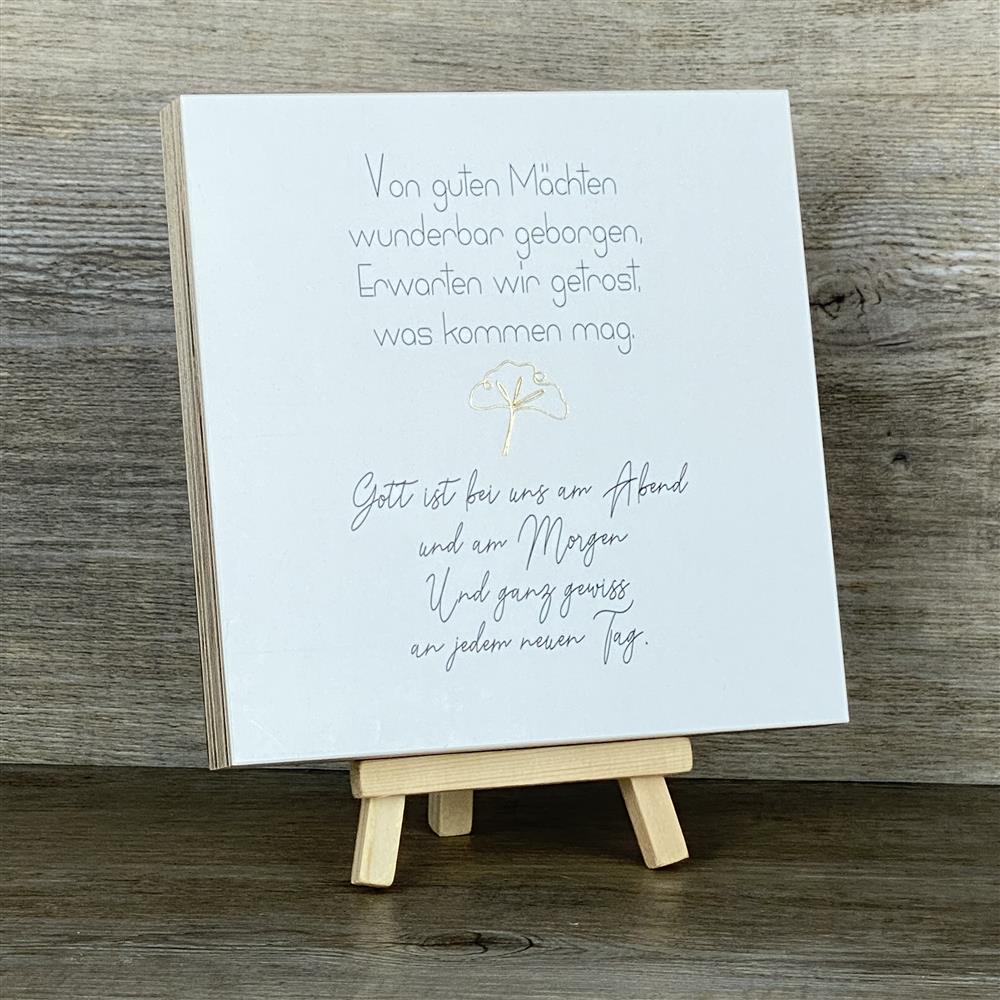 Von guten Mächten
wunderbar geborgen,
Erwarten wir getrost,
was kommen mag.
Gott ist bei uns am Abend
und am Morgen
Und ganz gewiss
an jedem neuen Tag.